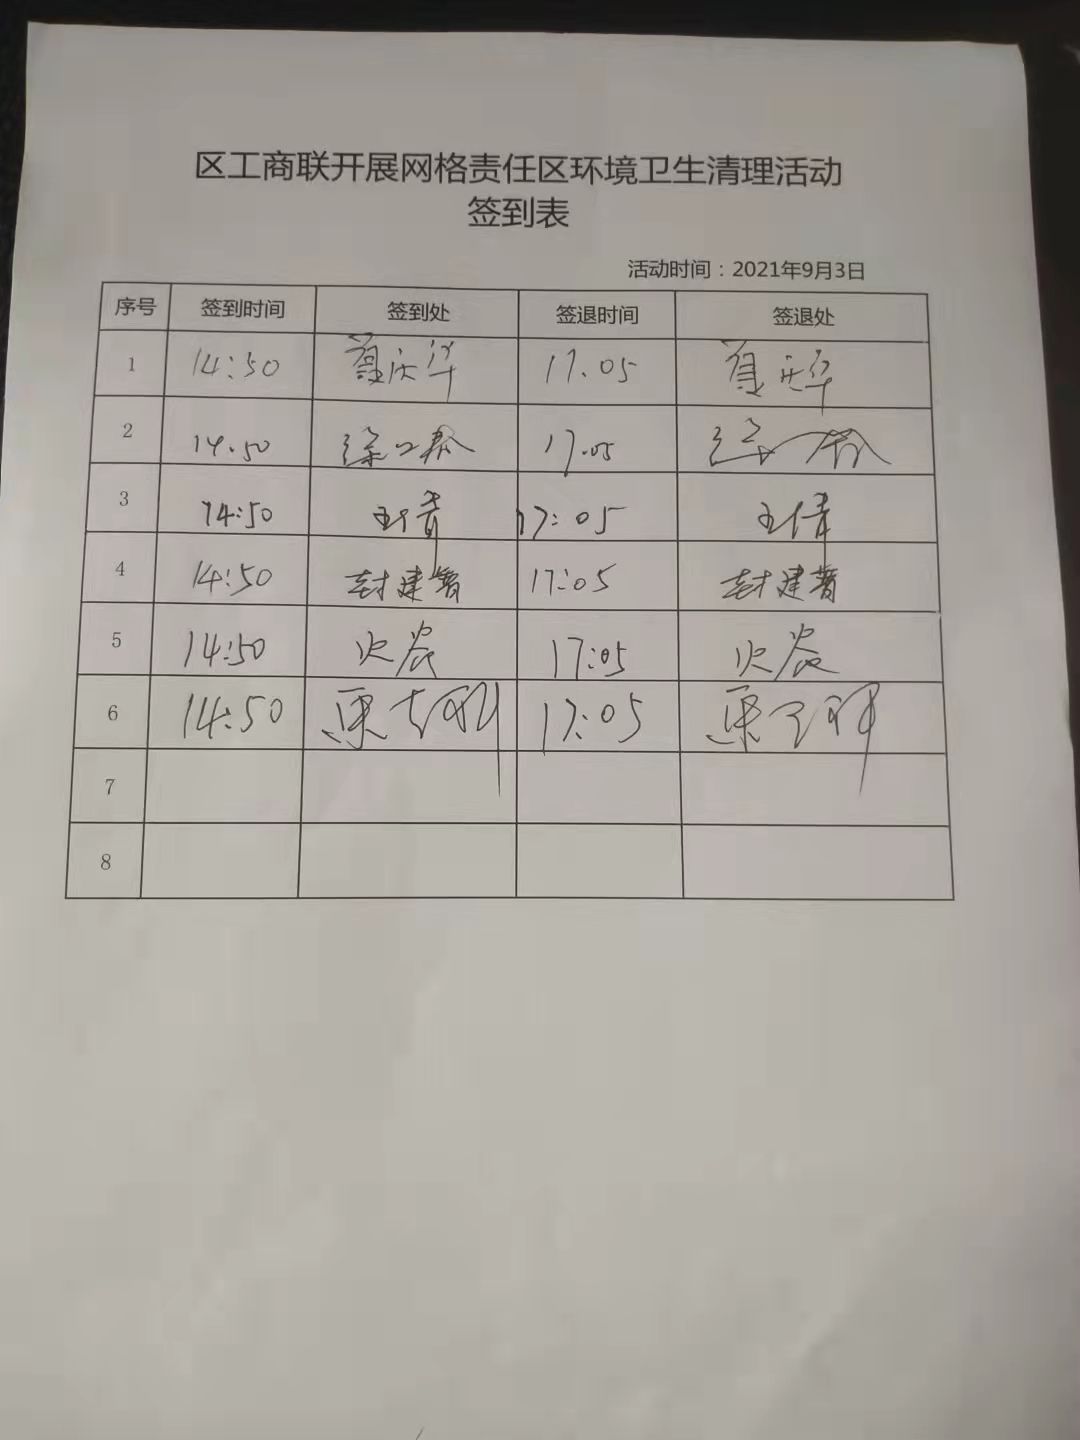 区工商联开展网格责任区环境卫生清理活动
签到表
活动时间：2021年9月3日
序号 签到时间 签到处 签退时间 签退处
1 14:50 17.05
2 14.50 17.05
3 14:50 王倩 17:05 王倩
4 14:50 封建 17:05 封建
5 14:50 17:05
6 14:50 17:05
7
8